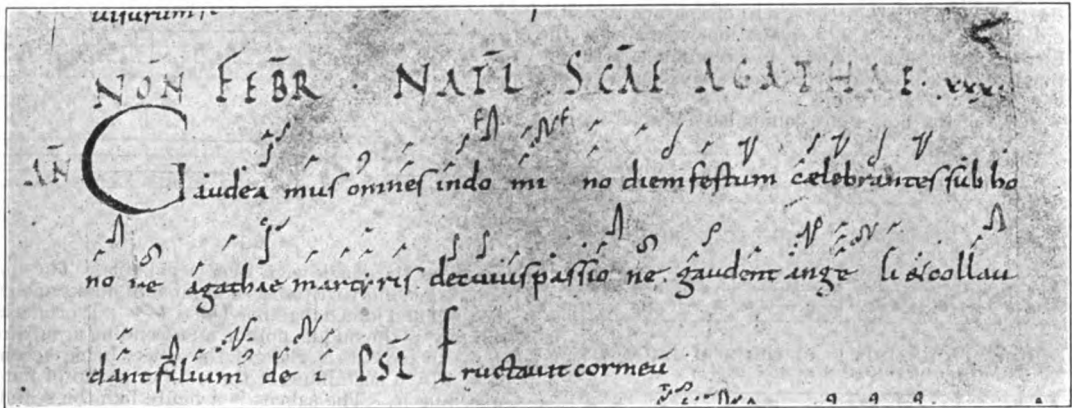 uisurum
NON FEBR · NATL SCAE AGATHAE · xxx ·
AN Gaudea mus omnes indo mi no diem festum celebrantes sub ho
no re agathae martyris de cuius passio ne gaudent ange li & collau
dant filium de i PSL Eructauit cor meu